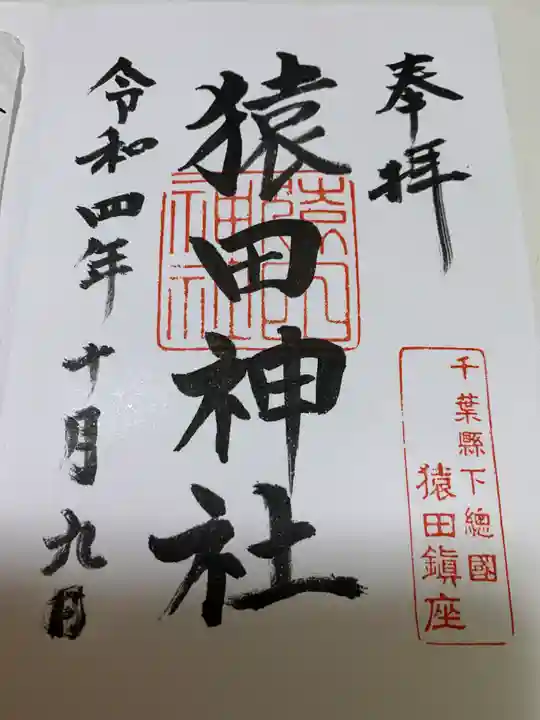 奉拝
千葉縣下總國
猿田鎮座
猿田神社
猿田
神社
令和四年十月九日